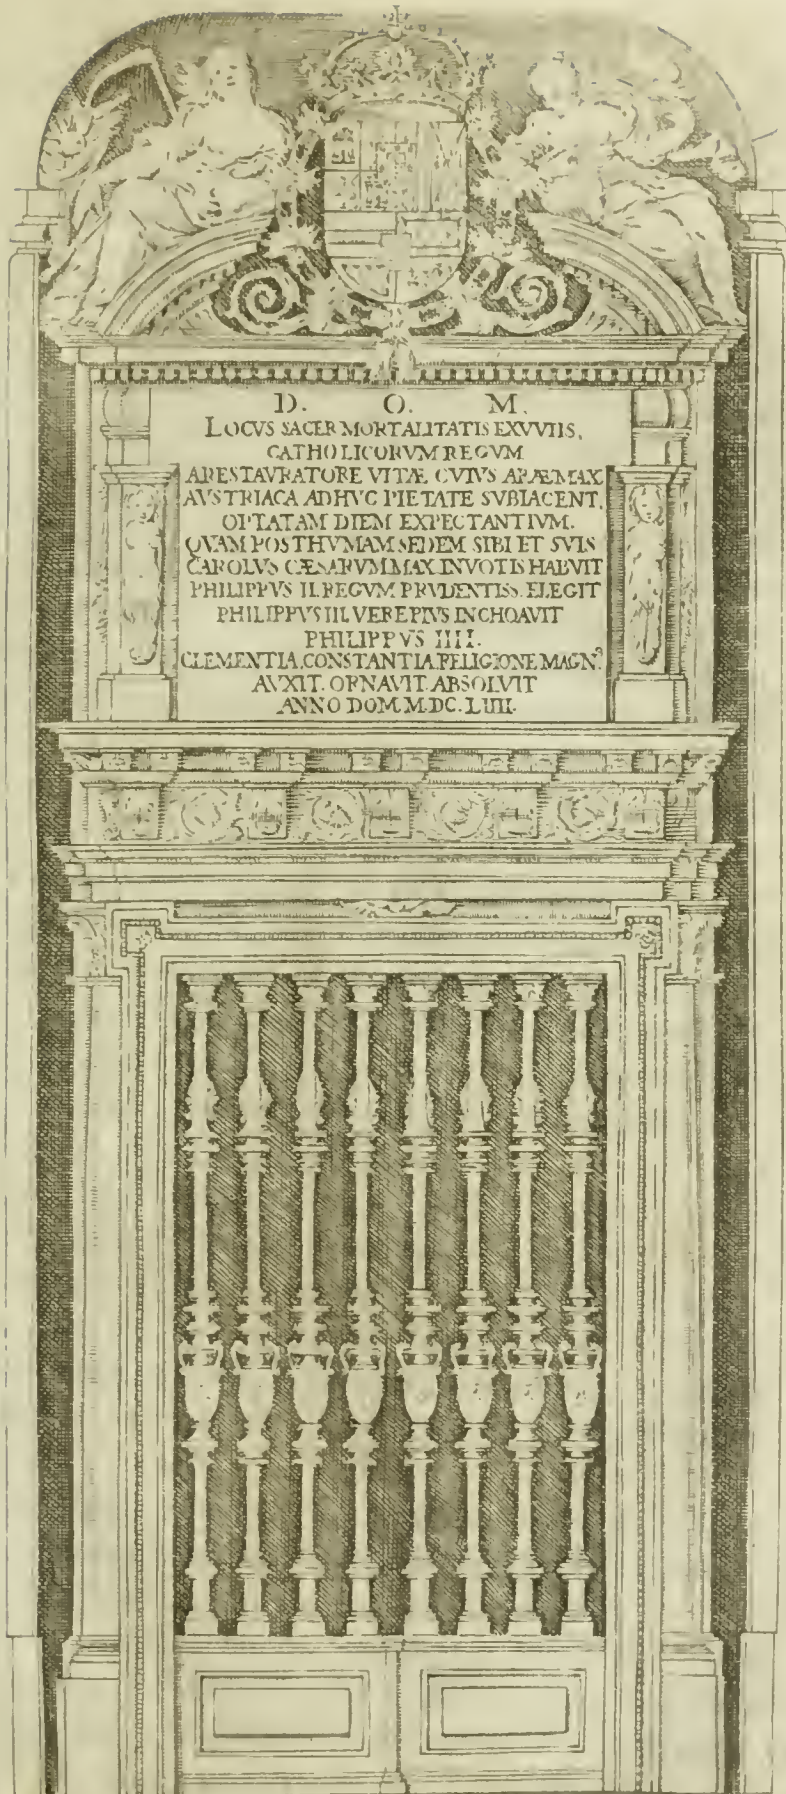 D. O. M.
LOCVS SACER MORTALITATIS EXVVIIS,
CATHOLICORVM REGVM
A RESTAVRATORE VITÆ CVIVS ARÆ MAX
AVSTRIACA ADHVC PIETATE SVBIACENT,
OPTATAM DIEM EXPECTANTIVM.
QVAM POSTHVMAM SEDEM SIBI ET SVIS
CAROLVS CÆSARVM MAX. IN VOTIS HABVIT
PHILIPPVS II. REGVM PRVDENTISS. ELEGIT
PHILIPPVS III. VERE PIVS INCHOAVIT
PHILIPPVS IIII.
CLEMENTIA. CONSTANTIA. RELIGIONE MAGN.
AVXIT. ORNAVIT. ABSOLVIT
ANNO DOM. M.DC.LIIII.